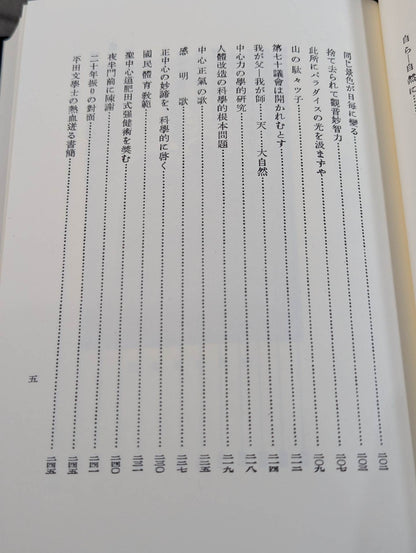 自ら―自然に
同じ景色が日毎に變る……二〇二
捨て去られて觀音妙智力……二〇三
此所にパラダイスの光を汲まずや……二〇七
山の駄々ツ子……二〇九
第七十議會は開かれむとす……二一三
我が父―我が師―天―大自然……二一四
中心力の學的研究……二一八
人體改造の科學的根本問題……二一九
中心正氣の歌……二二五
感明歌……二二七
正中心の妙諦を、科學的に啓く……二三〇
國民體育敎範……二三一
聖中心道肥田式强健術を奬む……二四〇
夜半門前に陳謝……二四一
二十年振りの對面……二四五
平田文學士の熱血迸る書簡……二四五
五